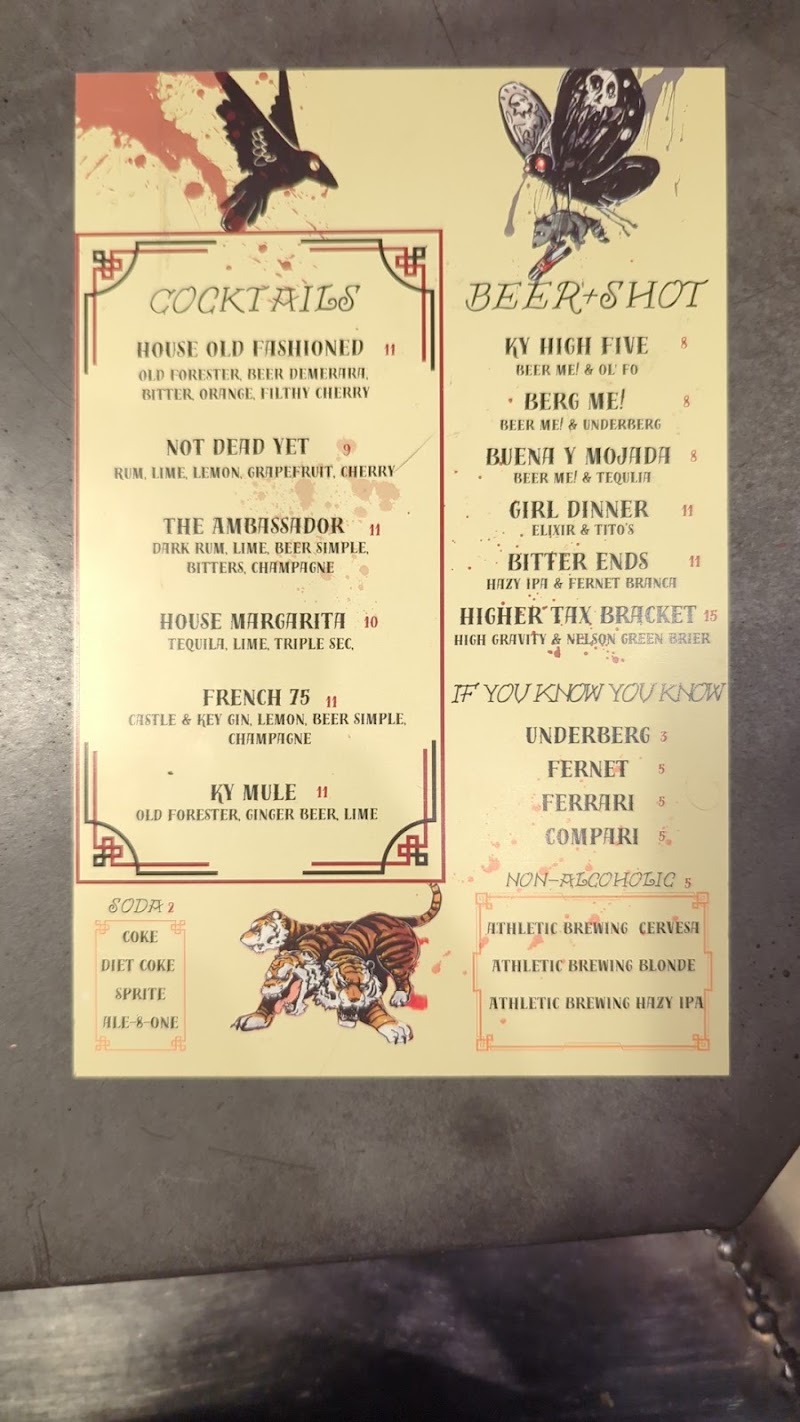 COCKTAILS
HOUSE OLD FASHIONED 11
OLD FORESTER, BEER DEMERARA,
BITTER, ORANGE, FILTHY CHERRY
NOT DEAD YET 9
RUM, LIME, LEMON, GRAPEFRUIT, CHERRY
THE AMBASSADOR 11
DARK RUM, LIME, BEER SIMPLE,
BITTERS, CHAMPAGNE
HOUSE MARGARITA 10
TEQUILA, LIME, TRIPLE SEC,
FRENCH 75 11
CASTLE & KEY GIN, LEMON, BEER SIMPLE,
CHAMPAGNE
KY MULE 11
OLD FORESTER, GINGER BEER, LIME
SODA 2
COKE
DIET COKE
SPRITE
ALE-8-ONE
BEER+SHOT
KY HIGH FIVE 8
BEER ME! & OL' FO
BERG ME! 8
BEER ME! & UNDERBERG
BUENA Y MOJADA 8
BEER ME! & TEQULIA
GIRL DINNER 11
ELIXIR & TITO'S
BITTER ENDS 11
HAZY IPA & FERNET BRANCA
HIGHER TAX BRACKET 15
HIGH GRAVITY & NELSON GREEN BRIER
IF YOU KNOW YOU KNOW
UNDERBERG 3
FERNET 5
FERRARI 5
COMPARI 5
NON-ALCOHOLIC 5
ATHLETIC BREWING CERVESA
ATHLETIC BREWING BLONDE
ATHLETIC BREWING HAZY IPA